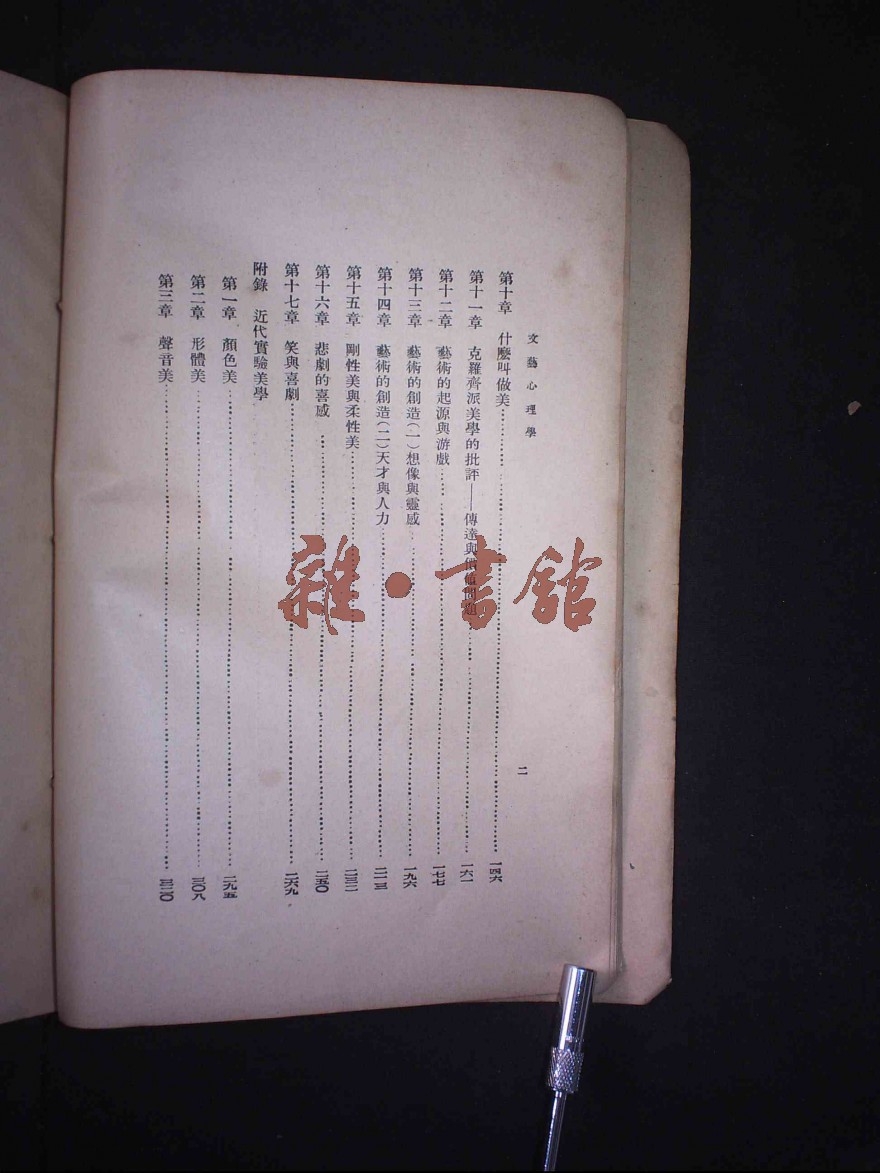 文藝心理學
二
第十章 什麼叫做美 一四六
第十一章 克羅齊派美學的批評——傳達與價值問題 一六一
第十二章 藝術的起源與游戲 一七七
第十三章 藝術的創造(一)想像與靈感 一九六
第十四章 藝術的創造(二)天才與人力 二一三
第十五章 剛性美與柔性美 二三二
第十六章 悲劇的喜感 二五〇
第十七章 笑與喜劇 二六九
附錄 近代實驗美學
第一章 顏色美 二九五
第二章 形體美 三〇八
第三章 聲音美 三二〇
雜·書館